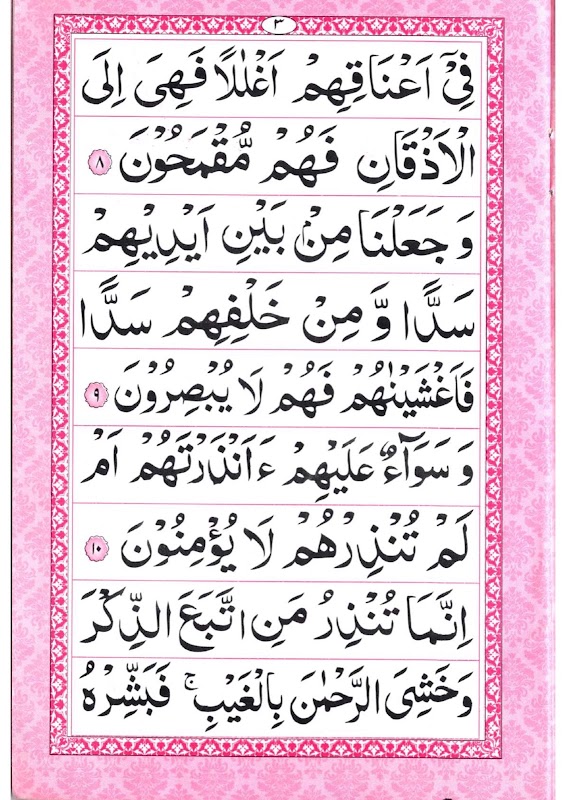 ٣
فِىْٓ اَعْنَاقِهِمْ اَغْلٰلًا فَهِىَ اِلَى
الْاَذْقَانِ فَهُمْ مُّقْمَحُوْنَ ٨
وَ جَعَلْنَا مِنْۢ بَيْنِ اَيْدِيْهِمْ
سَدًّا وَّ مِنْ خَلْفِهِمْ سَدًّا
فَاَغْشَيْنٰهُمْ فَهُمْ لَا يُبْصِرُوْنَ ٩
وَ سَوَآءٌ عَلَيْهِمْ ءَاَنْذَرْتَهُمْ اَمْ
لَمْ تُنْذِرْهُمْ لَا يُؤْمِنُوْنَ ١٠
اِنَّمَا تُنْذِرُ مَنِ اتَّبَعَ الذِّكْرَ
وَخَشِىَ الرَّحْمٰنَ بِالْغَيْبِ ۚ فَبَشِّرْهُ